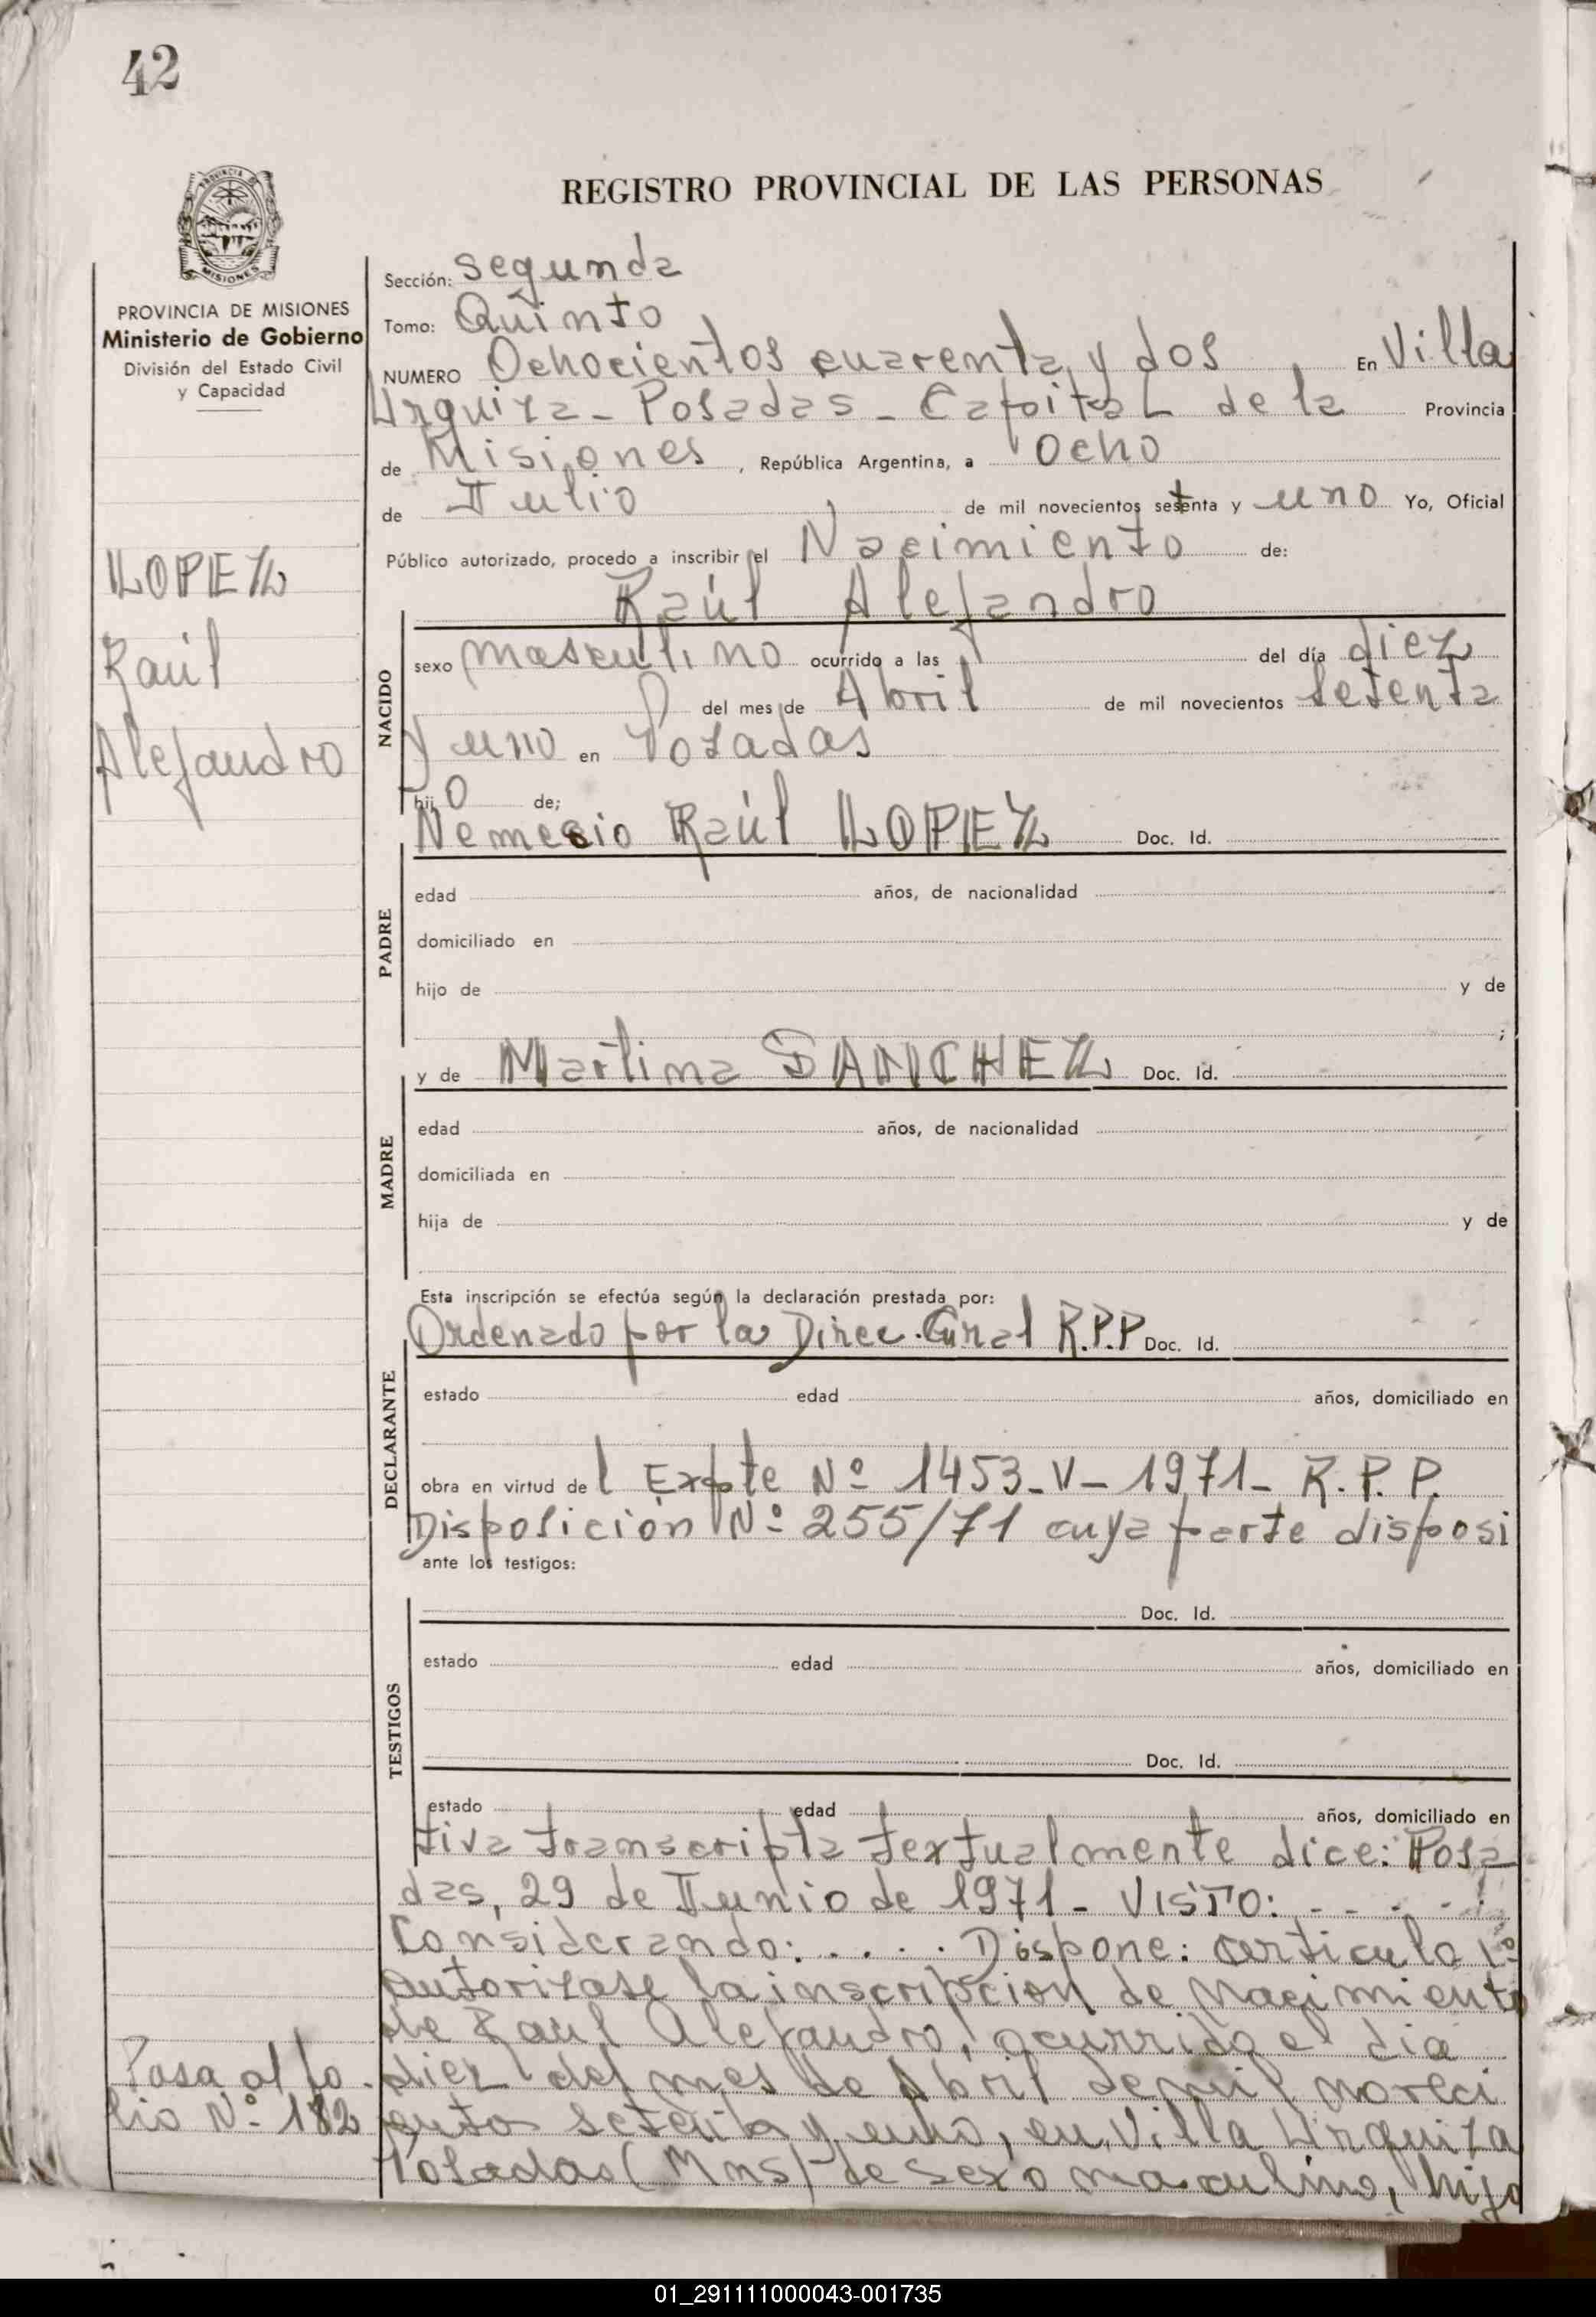 42
PROVINCIA DE
MISIONES
PROVINCIA DE MISIONES
Ministerio de Gobierno
División del Estado Civil
y Capacidad
LOPEZ
Raúl
Alejandro
REGISTRO PROVINCIAL DE LAS PERSONAS
Sección: Segunda
Tomo: Quinto
NUMERO Ochocientos cuarenta y dos En Villa
Urquiza - Posadas - Capital de la Provincia
de Misiones, República Argentina, a Ocho
de Julio de mil novecientos setenta y uno Yo, Oficial
Público autorizado, procedo a inscribir el Nacimiento de:
Raúl Alejandro
NACIDO
sexo masculino ocurrido a las del día diez
del mes de Abril de mil novecientos setenta
y uno en Posadas
hijo de;
Nemesio Raúl LOPEZ Doc. Id.
PADRE
edad años, de nacionalidad
domiciliado en
hijo de y de
;
y de Martina SANCHEZ Doc. Id.
MADRE
edad años, de nacionalidad
domiciliada en
hija de y de
Esta inscripción se efectúa según la declaración prestada por:
Ordenado por la Direc. Gnral R.P.P Doc. Id.
DECLARANTE
estado edad años, domiciliado en
obra en virtud del Expte Nº 1453-V-1971- R.P.P.
Disposición Nº 255/71 cuya parte disposi
ante los testigos:
Doc. Id.
TESTIGOS
estado edad años, domiciliado en
Doc. Id.
estado edad años, domiciliado en
tiva transcripta textualmente dice: Posa
das, 29 de Junio de 1971 - VISTO: - - - -
Considerando: . . . . . Dispone: articulo 1º
autorizase la inscripcion de Nacimiento
de Raul Alejandro, ocurrido el dia
diez del mes de Abril de mil noveci
entos setenta y uno, en Villa Urquiza
Posadas (Mns) de sexo masculino, hijo
Pasa al fo
lio Nº 182
01_291111000043-001735